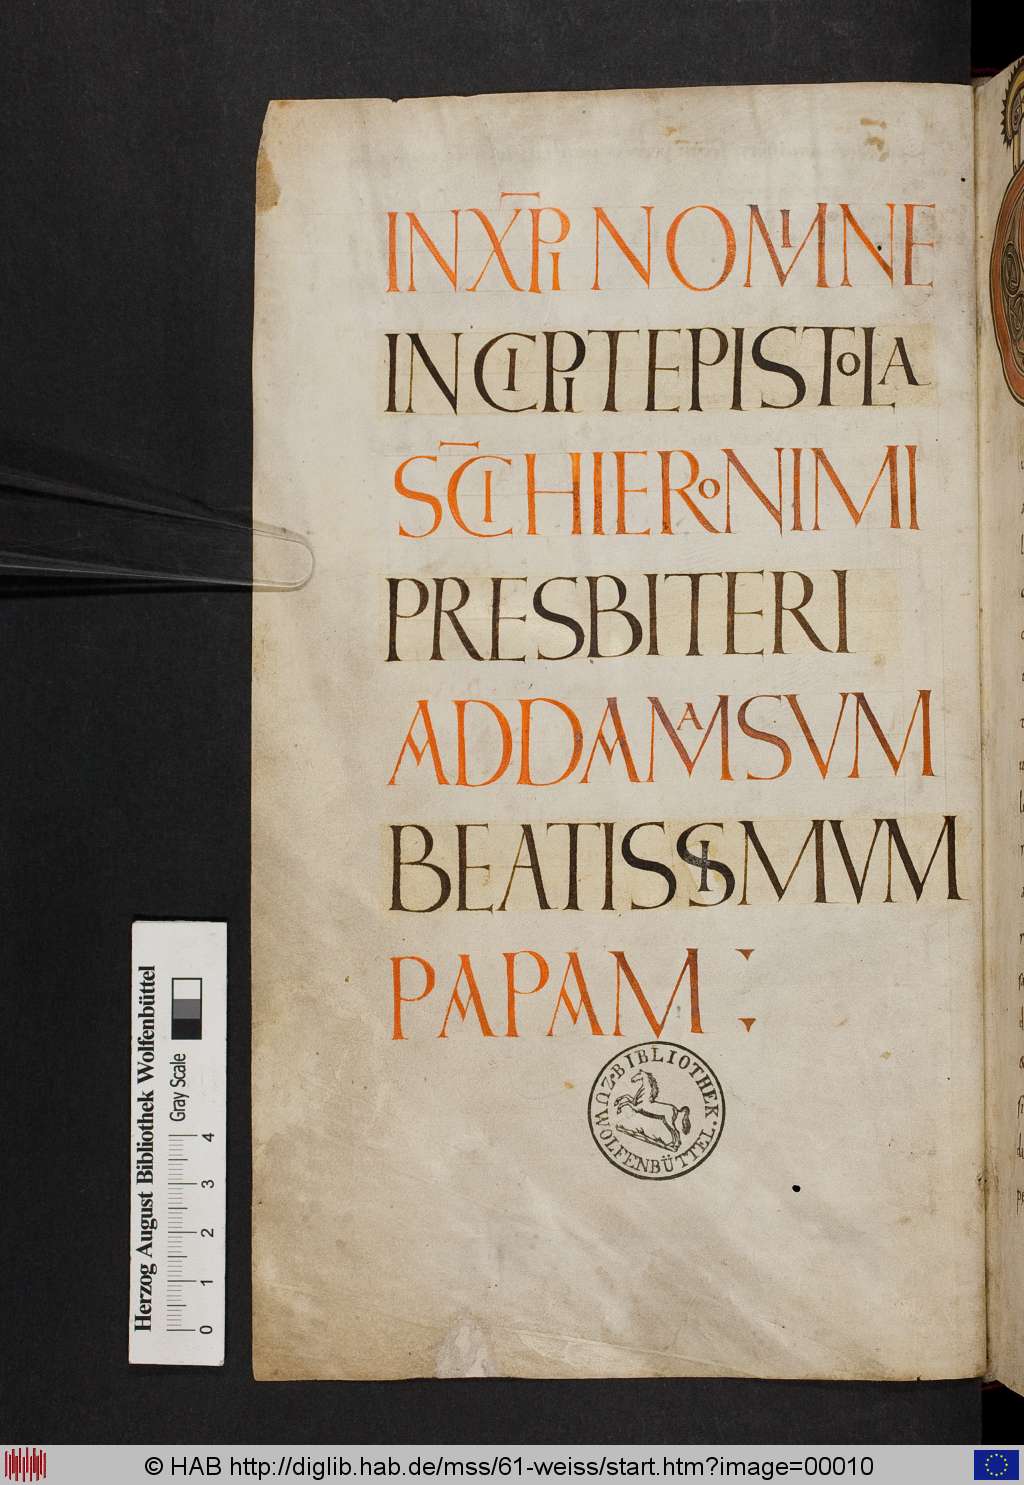 IN XP̅I NOMINE
INCIPIT EPISTOLA
SC̅I HIERONIMI
PRESBITERI
AD DAMASVM
BEATISSIMVM
PAPAM :
BIBLIOTHEK ZU WOLFENBÜTTEL.
Herzog August Bibliothek Wolfenbüttel
Gray Scale
0 1 2 3 4
© HAB http://diglib.hab.de/mss/61-weiss/start.htm?image=00010